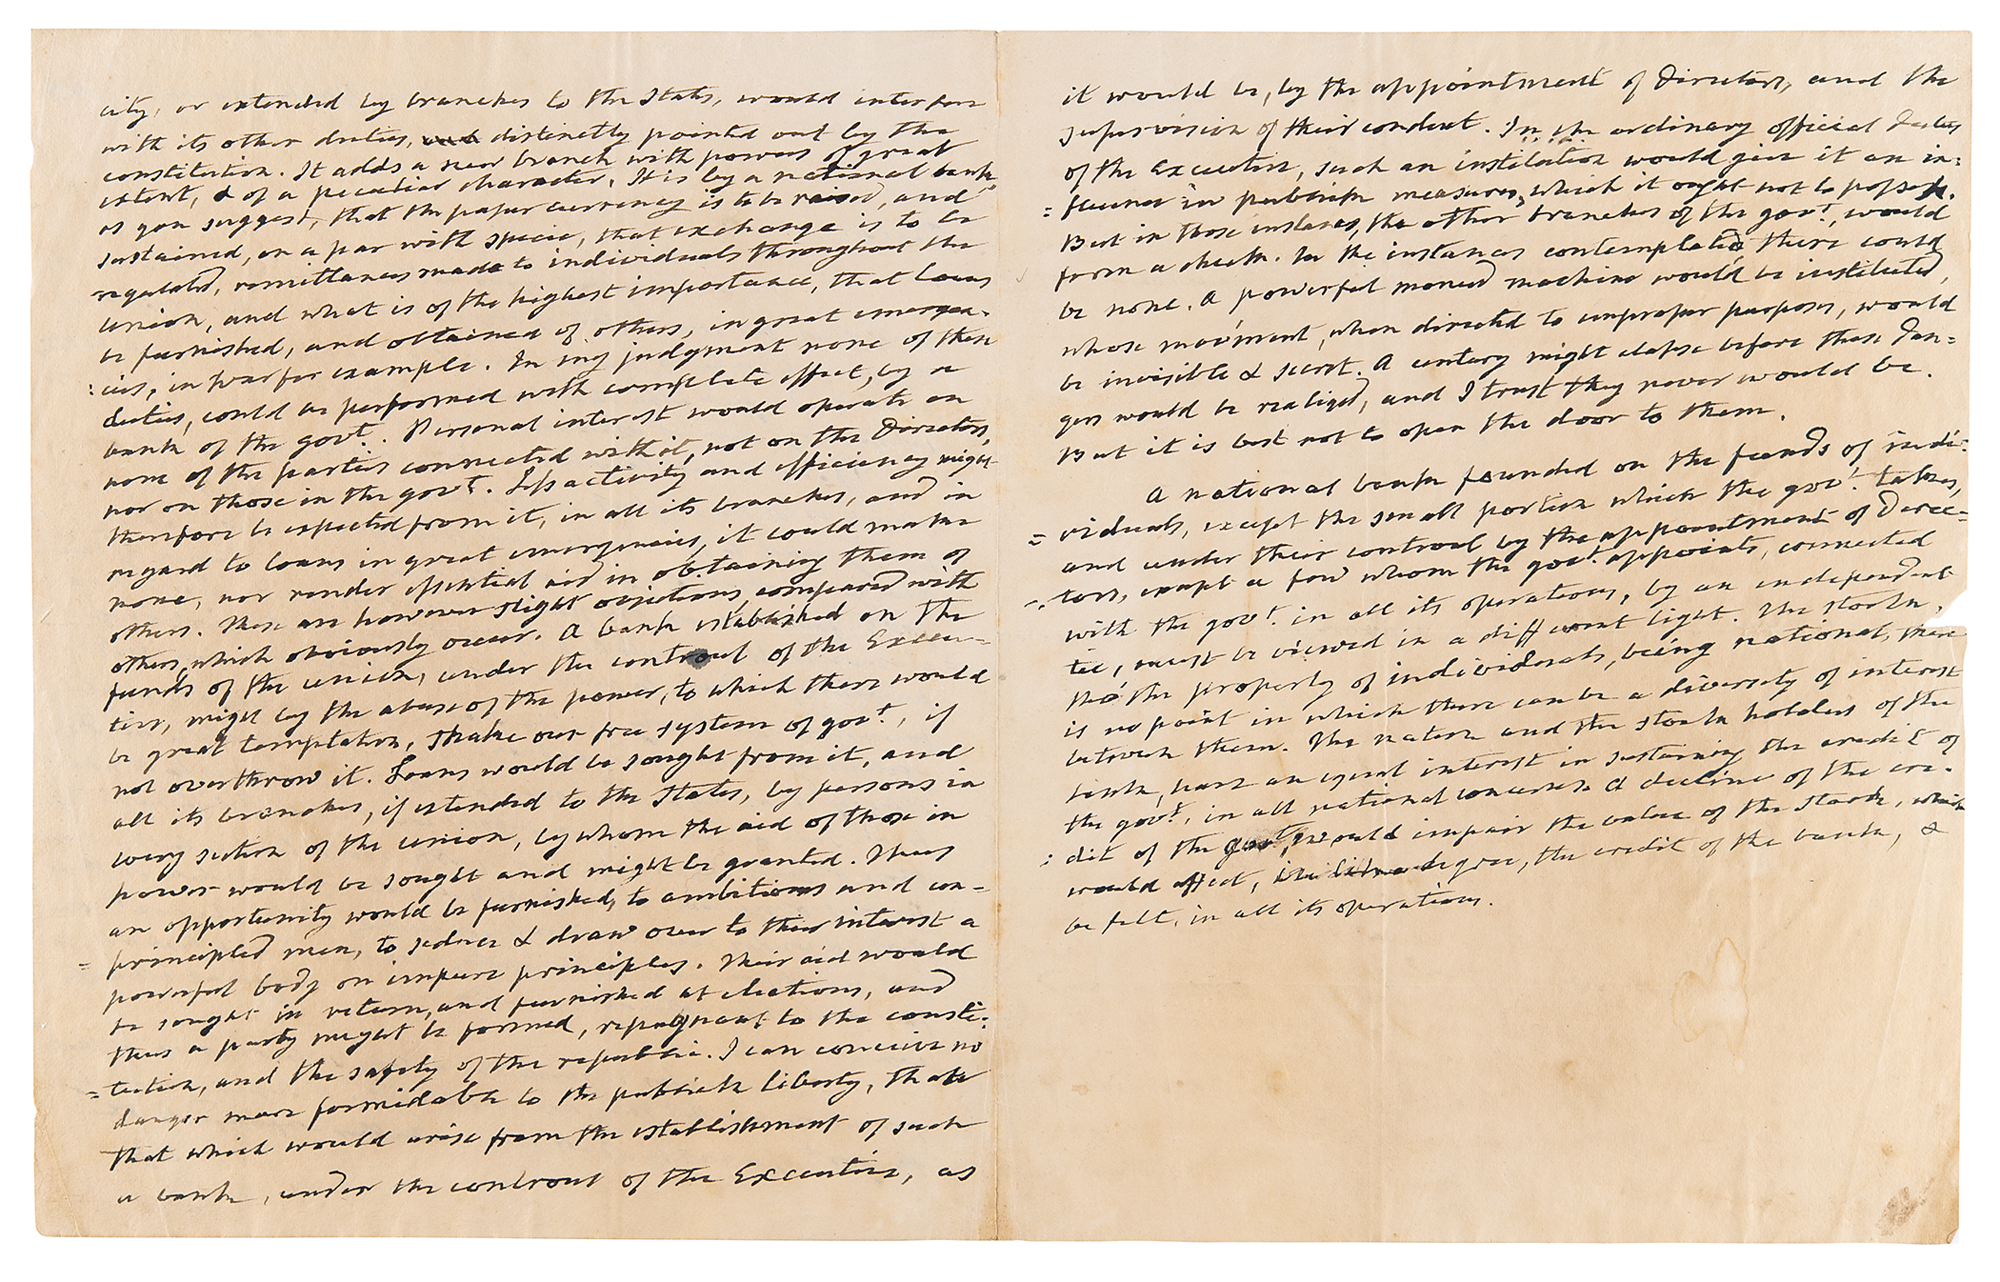 city, or extended by branches to the States, would interfere
with its other duties, distinctly pointed out by the
constitution. It adds a new branch with powers of great
extent, & of a peculiar character. It is by a national bank,
as you suggest, that the paper currency is to be raised, and
sustained, on a par with specie, that exchange is to be
regulated, remittances made to individuals throughout the
union, and what is of the highest importance, that loans
be furnished, and obtained of others, in great emergen-
:cies, in war for example. In my judgment none of these
duties, could be performed with complete effect, by a
bank of the govt. Personal interest would operate on
none of the parties connected with it, not on the Directors,
nor on those in the govt. Less activity and efficiency might
therefore be expected from it, in all its branches, and in
regard to loans in great emergencies, it could make
none, nor render essential aid in obtaining them of
others. These are however slight objections, compared with
others, which obviously occur. A bank established on the
funds of the union, under the controul of the Execu-
tive, might by the abuse of the power, to which there would
be great temptation, shake our free system of govt., if
not overthrow it. Loans would be sought from it, and
all its branches, if extended to the States, by persons in
every section of the union, by whom the aid of those in
power would be sought and might be granted. Thus
an opportunity would be furnished, to ambitious and un-
=principled men, to seduce & draw over to their interest a
powerful body on impure principles. Their aid would
be sought in return, and furnished at elections, and
thus a party might be formed, repugnant to the consti:
=tution, and the safety of the republic. I can conceive no
danger more formidable to the publick liberty, than
that which would arise from the establishment of such
a bank, under the controul of the Executive, as
it would be, by the appointment of Directors, and the
supervision of their conduct. In the ordinary official duties
of the Executive, such an institution would give it an in:
=fluence in publick measures, which it ought not to possess.
But in those instances, the other branches of the govt. would
form a check. In the instances contemplated there could
be none. A powerful monied machine would be instituted,
whose mov'ment, when directed to improper purposes, would
be invisible & secret. A century might elapse before these dan=
gers would be realized, and I trust they never would be.
But it is best not to open the door to them.
A national bank founded on the funds of indi:
=viduals, except the small portion which the govt. takes,
and under their controul by the appointment of Direc=
=tors, except a few whom the govt. appoints, connected
with the govt. in all its operations, by an independent
tie, must be viewed in a different light. The stock,
tho' the property of individuals, being national, there
is no point in which there can be a diversity of interest
between them. The nation and the stock holders of the
bank, have an equal interest in sustaining the credit of
the govt., in all national concerns. A decline of the cre-
:dit of the govt, would impair the value of the stock, which
would affect, in like degree, the credit of the bank, &
be felt, in all its operations.